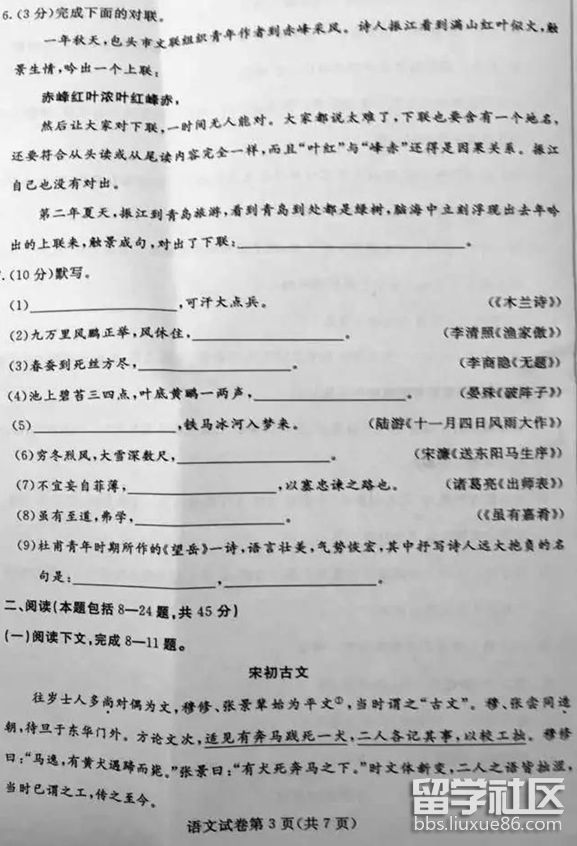 6.(3分)完成下面的对联。
一年秋天,包头市文联组织青年作者到赤峰采风。诗人振江看到满山红叶似火,触
景生情,吟出一个上联:
赤峰红叶浓叶红峰赤,
然后让大家对下联,一时间无人能对。大家都说太难了,下联也要含有一个地名,
还要符合从头读或从尾读内容完全一样,而且“叶红”与“峰赤”还得是因果关系。振江
自己也没有对出。
第二年夏天,振江到青岛旅游,看到青岛到处都是绿树,脑海中立刻浮现出去年吟
出的上联来,触景成句,对出了下联:____________。
.(10分)默写。
(1)____________,可汗大点兵。 (《木兰诗》)
(2)九万里风鹏正举,风休住,____________。 (李清照《渔家傲》)
(3)春蚕到死丝方尽,____________。 (李商隐《无题》)
(4)池上碧苔三四点,叶底黄鹂一两声,____________。 (晏殊《破阵子》)
(5)____________,铁马冰河入梦来。 (陆游《十一月四日风雨大作》)
(6)穷冬烈风,大雪深数尺,____________。 (宋濂《送东阳马生序》)
(7)不宜妄自菲薄,____________,以塞忠谏之路也。 (诸葛亮《出师表》)
(8)虽有至道,弗学,____________。 (《虽有嘉肴》)
(9)杜甫青年时期所作的《望岳》一诗,语言壮美,气势恢宏,其中抒写诗人远大抱负的名
句是:____________,____________。
二、阅读(本题包括8—24题,共45分)
(一)阅读下文,完成8—11题。
宋初古文
往岁士人多尚对偶为文,穆修、张景辈始为平文①,当时谓之“古文”。穆、张尝同造
朝,待旦于东华门外。方论文次,适见有奔马践死一犬,二人各记其事,以较工拙。穆修
曰:“马逸,有黄犬遇蹄而毙。”张景曰:“有犬死奔马之下。”时文体新变,二人之语皆拙涩,
当时已谓之工,传之至今。
语文试卷第3页(共7页)
留学社区
bbs.liuxue86.com